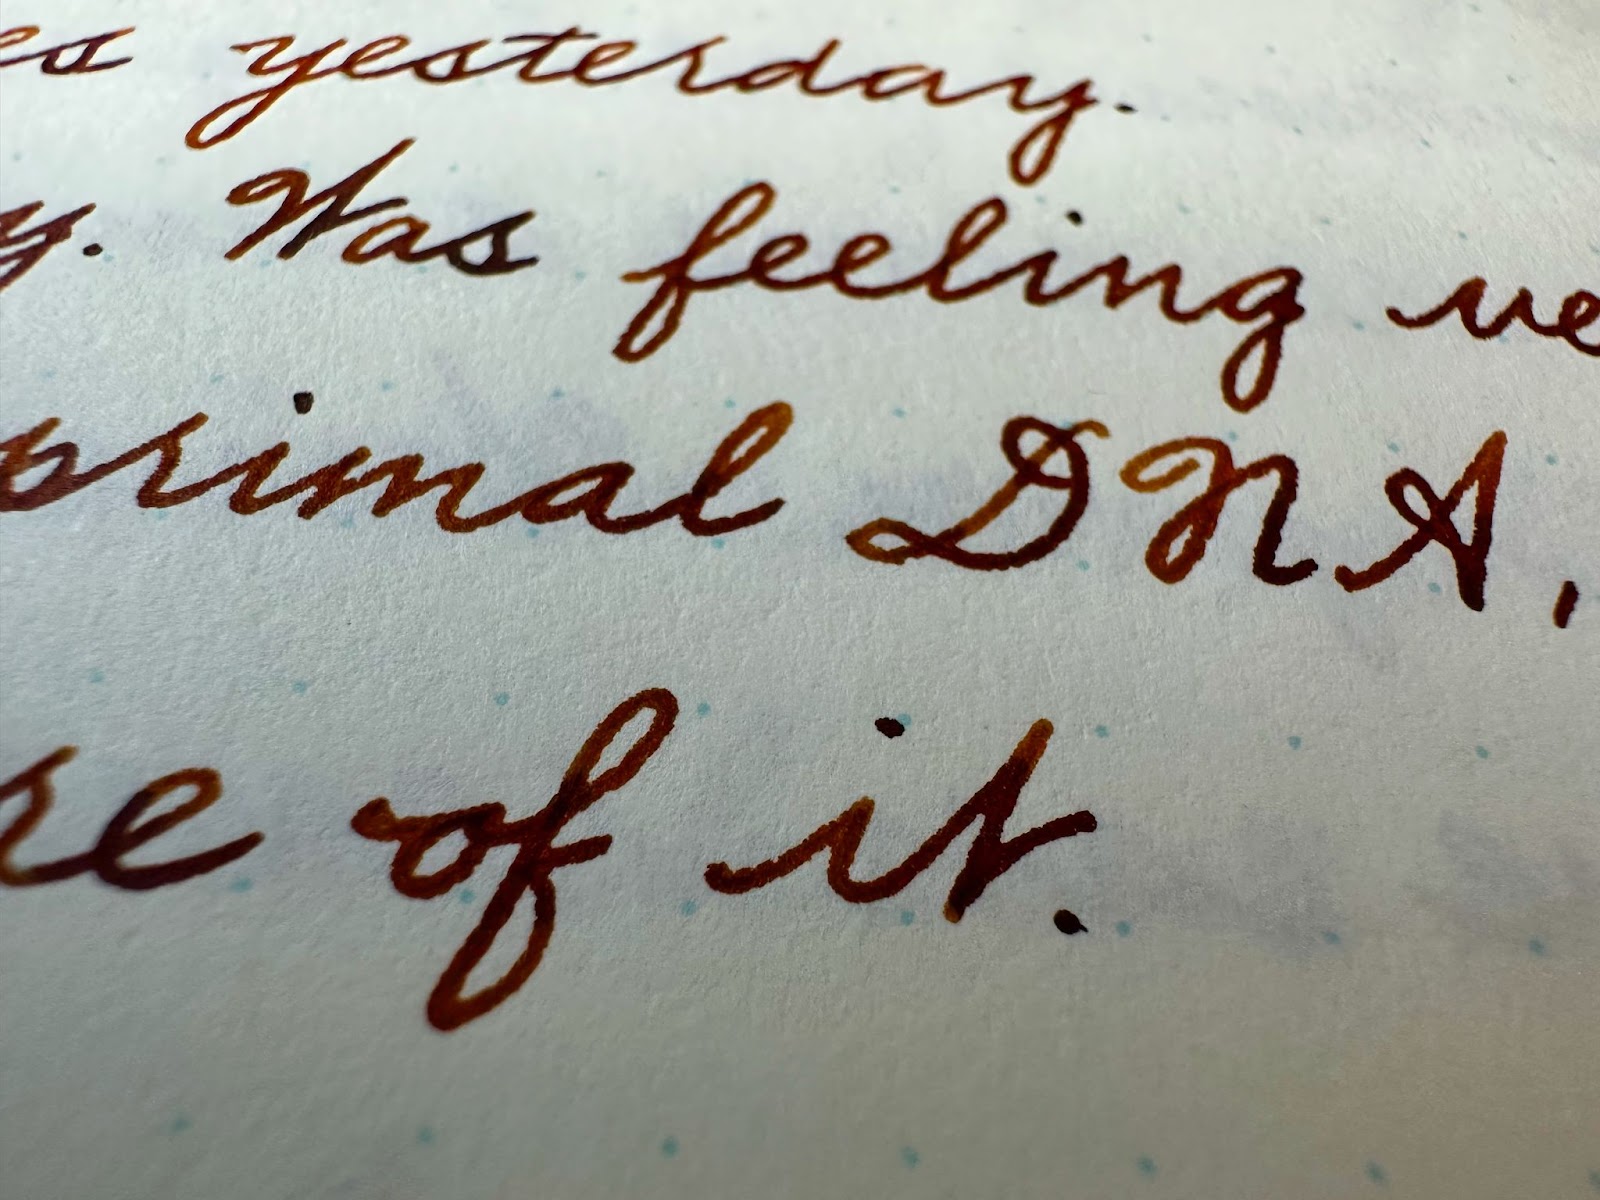 es yesterday.
y. Was feeling ve
primal DNA,
re of it.